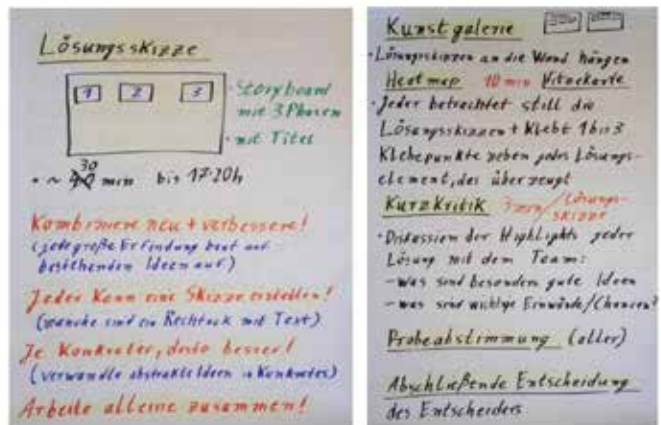 Lösungsskizze
1 2 3
· Storyboard
mit 3 Phasen
· mit Titel
· ~ 30 min bis 17:20h
Kombiniere neu + verbessere!
(jede große Erfindung baut auf
bestehenden Ideen auf)
Jeder kann eine Skizze erstellen!
(manche sind ein Rechteck mit Text)
Je konkreter, desto besser!
(verwandle abstrakte Ideen in Konkretes)
Arbeite alleine zusammen!
Kunstgalerie
· Lösungsskizzen an die Wand hängen
Heatmap 10 min
· Jeder betrachtet still die
Lösungsskizzen + klebt 1 bis 3
Klebepunkte neben jedes Lösungs-
element, das überzeugt
Kurzkritik 3 min / Lösungs-
skizze
· Diskussion der Highlights jeder
Lösung mit dem Team:
– was sind besonders gute Ideen
– was sind wichtige Einwände/Chancen?
Probeabstimmung (aller)
Abschließende Entscheidung
des Entscheiders